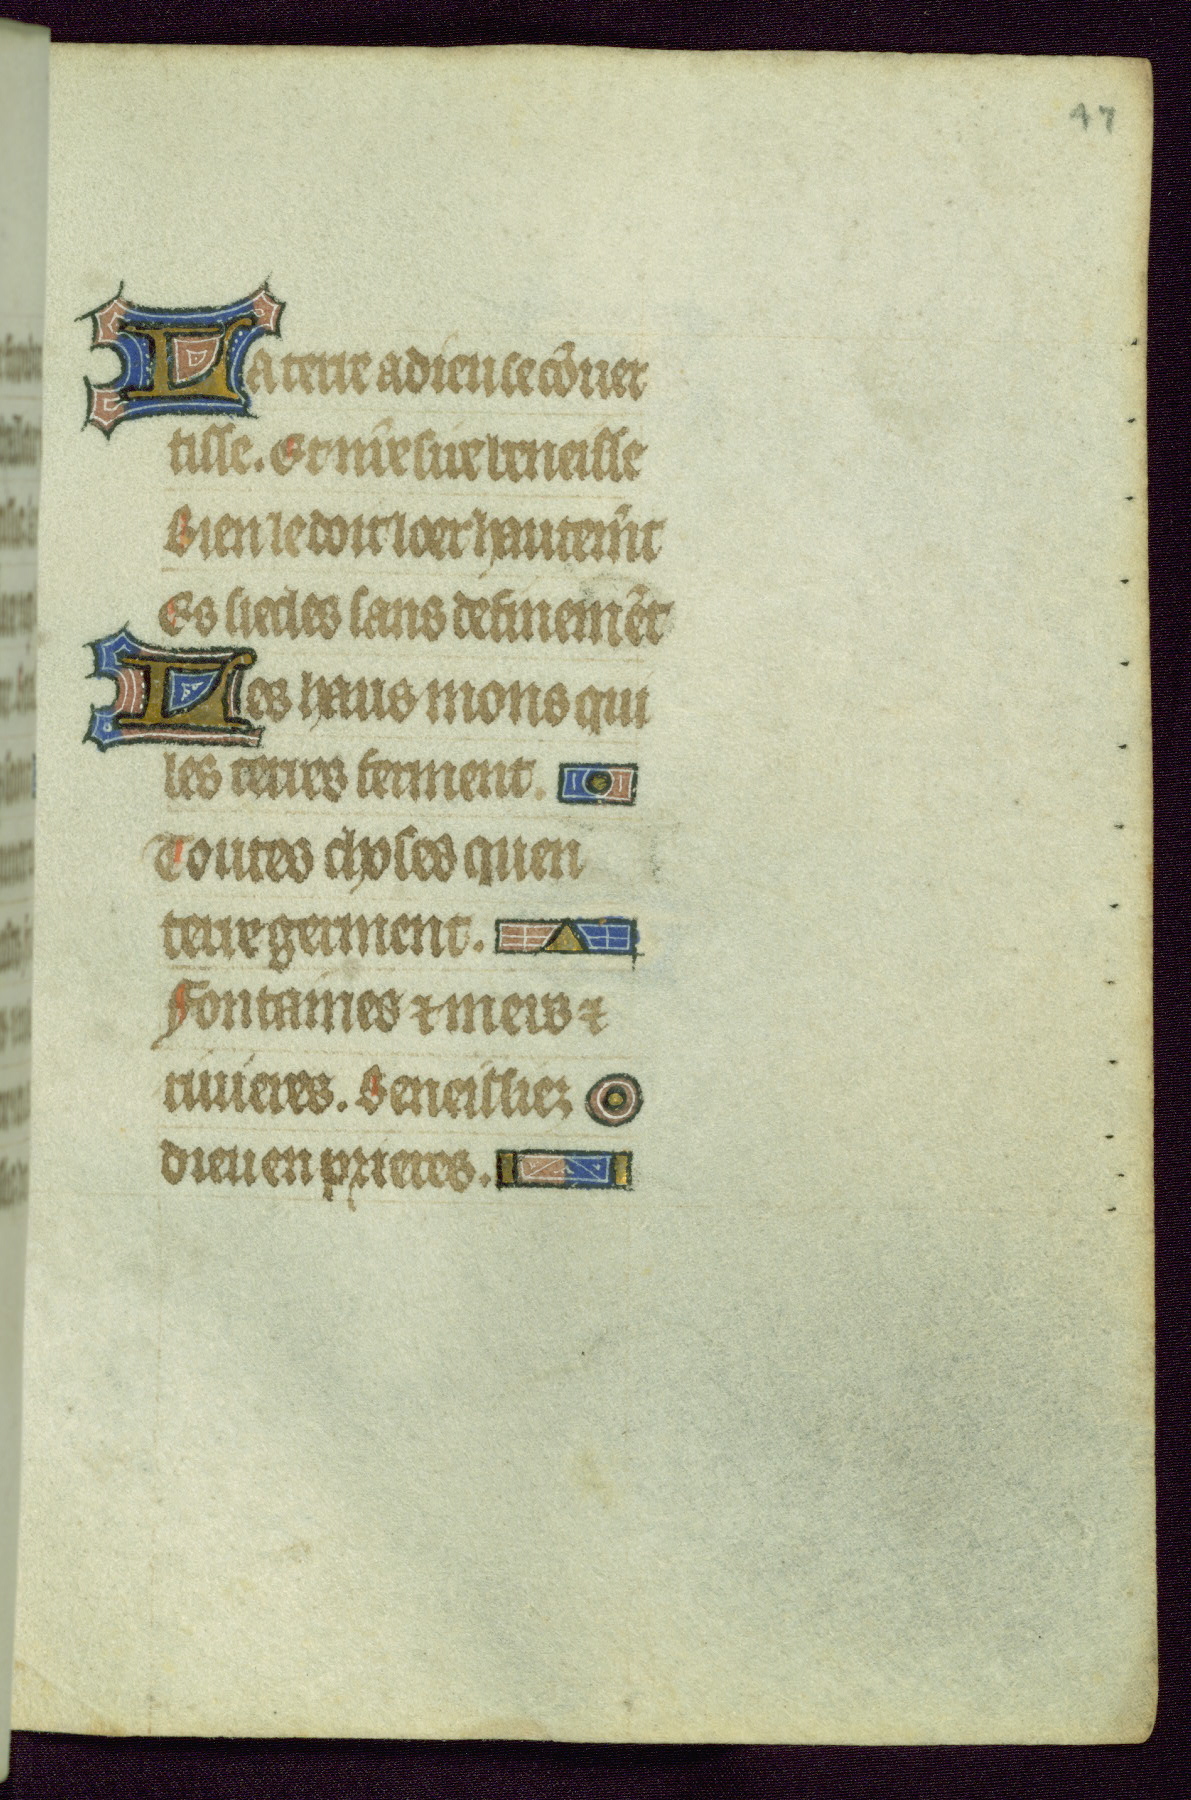 47
La terre a dieu se cõuer
tisse. Et nr̃e sire beneisse
Bien le doit loer hautem̃t
Es siecles sans definemẽt
Les haus mons qui
les terres ferment.
Toutes choses quen
terre germent.
Fontaines ⁊ mers ⁊
riuieres. Beneissiez
dieu en prieres.